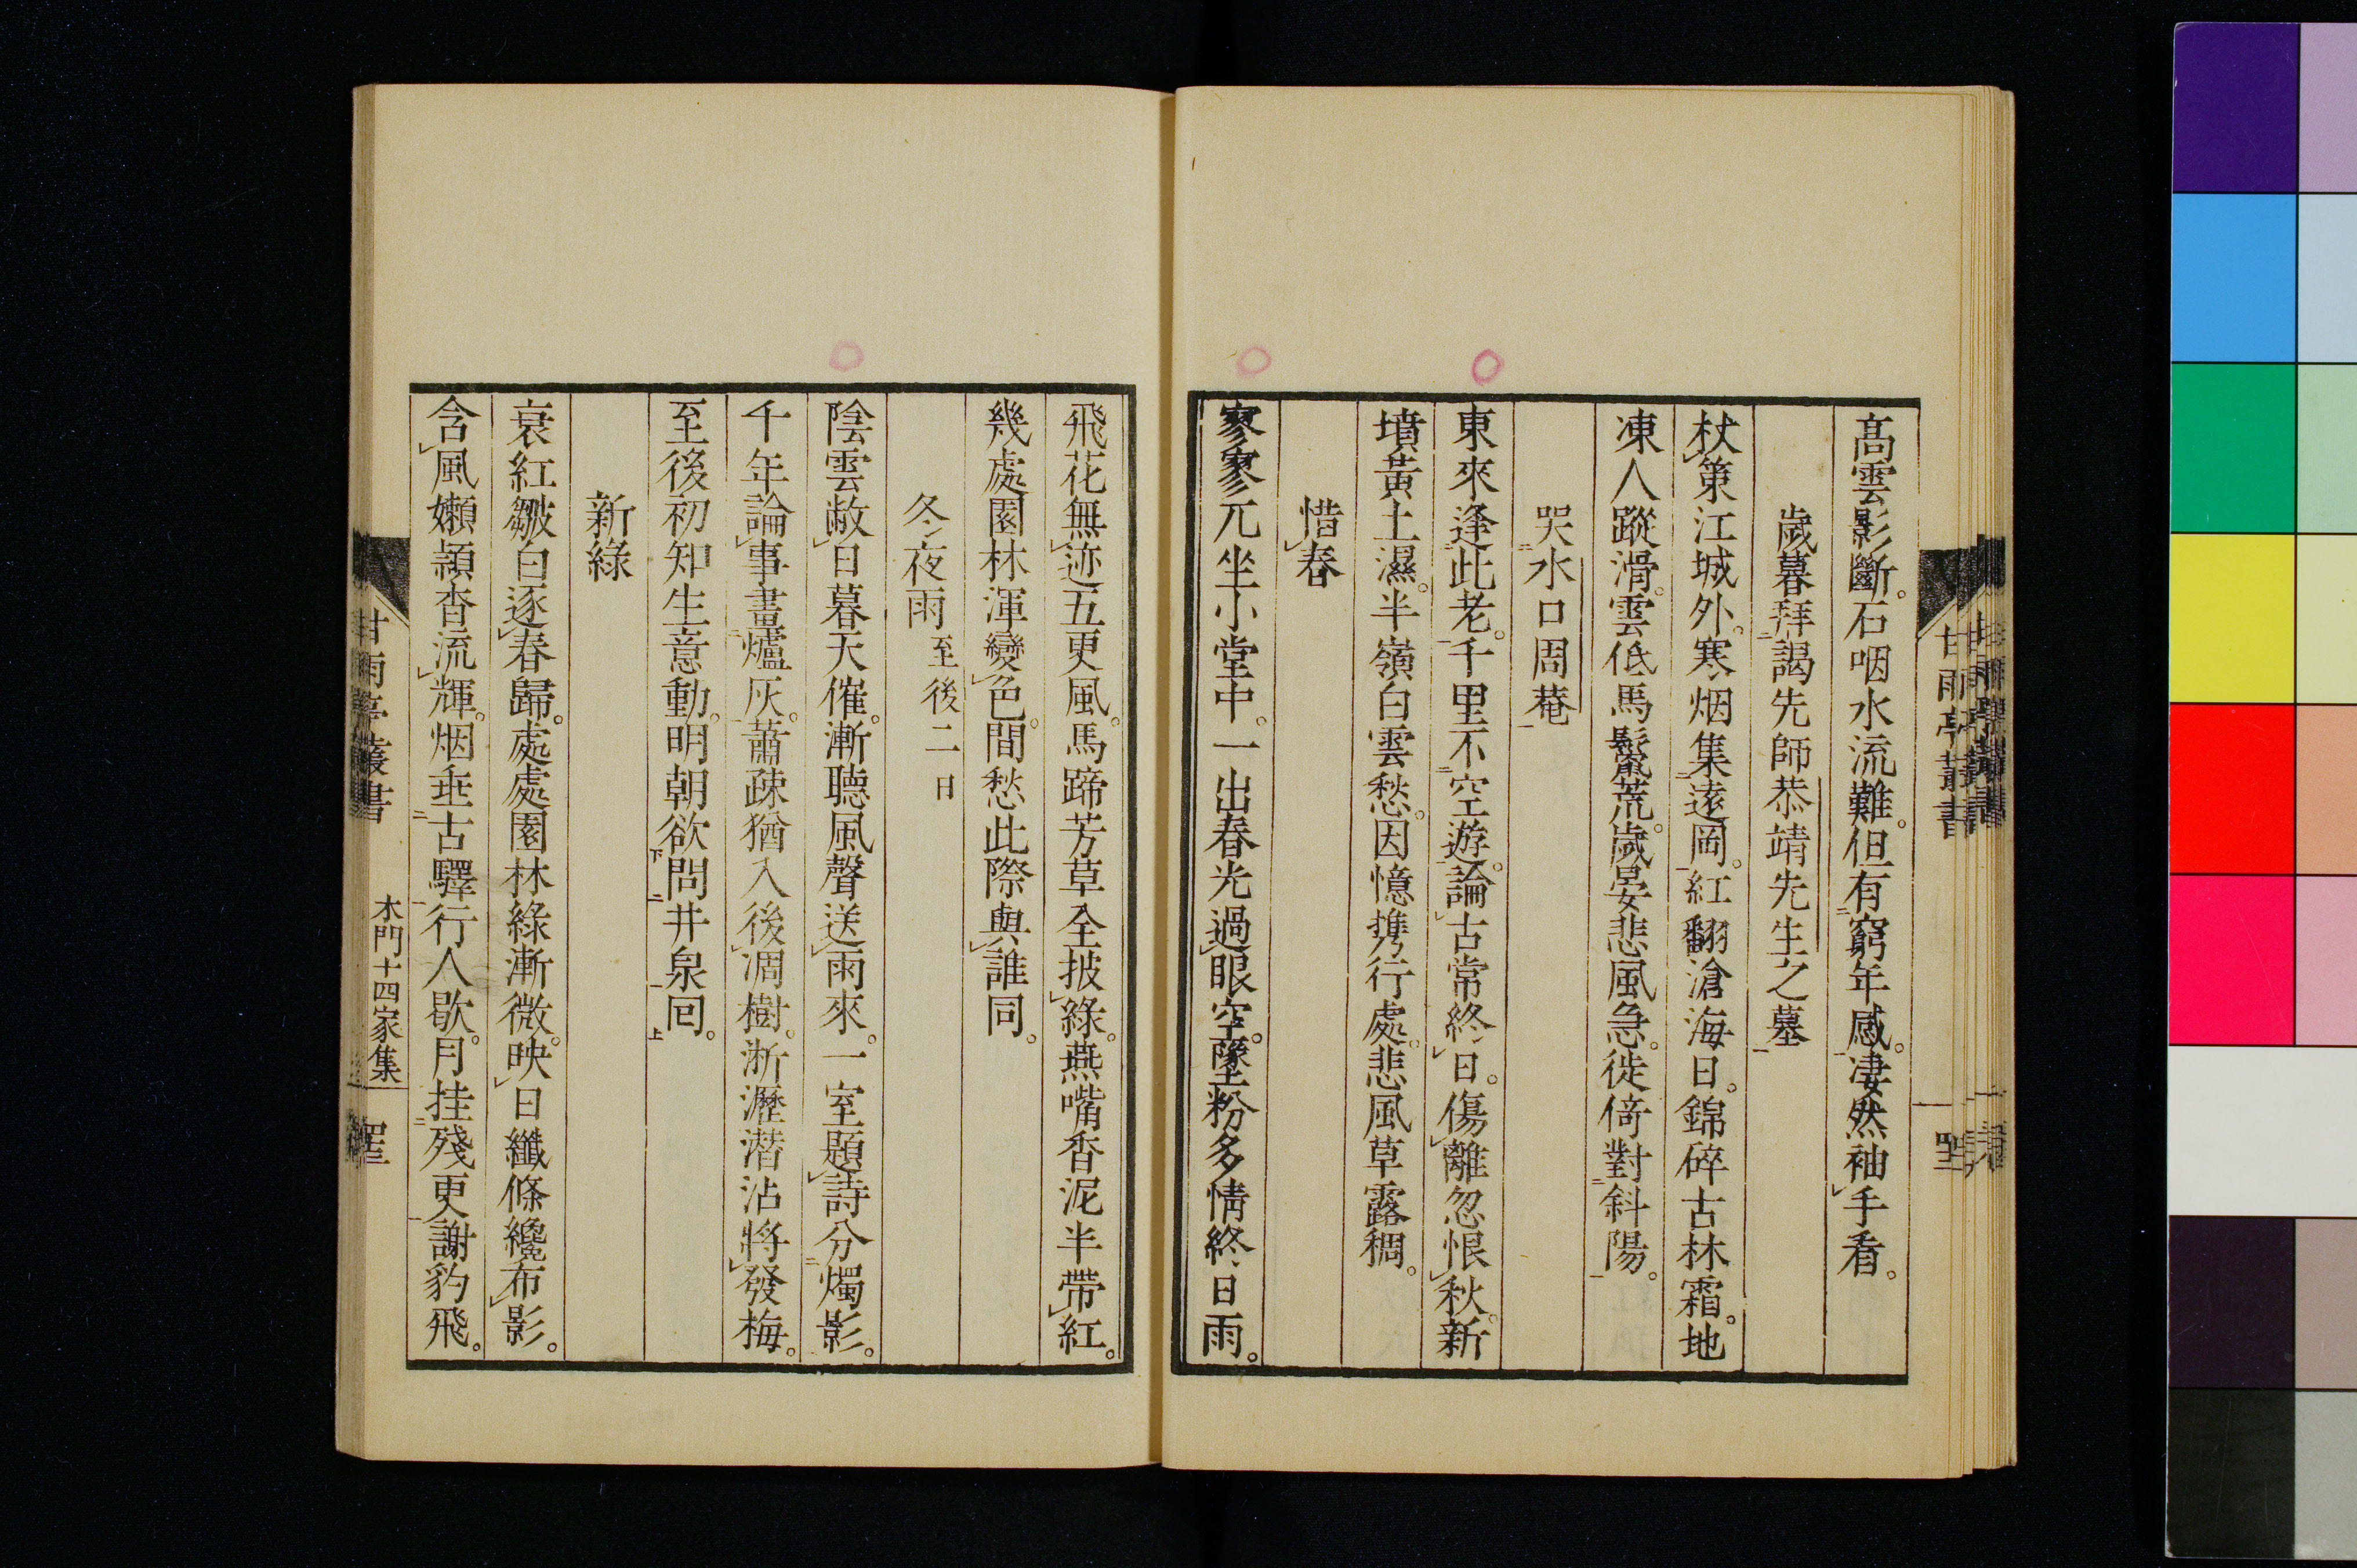 高雲影斷。石咽水流難。但有窮年感。凄然袖手看。
歲暮拜謁先師恭靖先生之墓
杖策江城外。寒烟集遠岡。紅翻滄海日。錦碎古林霜。地
凍人蹤滑。雲低馬鬣荒。歲晏悲風急。徙倚對斜陽。
哭水口周菴
東來逢此老。千里不空遊。論古常終日。傷離忽恨秋。新
墳黃土濕。半嶺白雲愁。因憶携行處。悲風草露稠。
惜春
寥寥兀坐小堂中。一出春光過眼空。墜粉多情終日雨。
飛花無迹五更風。馬蹄芳草全披綠。燕嘴香泥半帶紅。
幾處園林渾變色。間愁此際與誰同。
冬夜雨 至後二日
陰雲敝日暮天催。漸聽風聲送雨來。一室題詩分燭影。
千年論事畫爐灰。蕭疎猶入後凋樹。淅瀝潛沾將發梅。
至後初知生意動。明朝欲問井泉回。
新綠
衰紅皺白逐春歸。處處園林綠漸微。映日纖條纔布影。
含風嫩穎杳流輝。烟垂古驛行人歇。月挂殘更謝豹飛。
甘雨亭叢書
木門十四家集